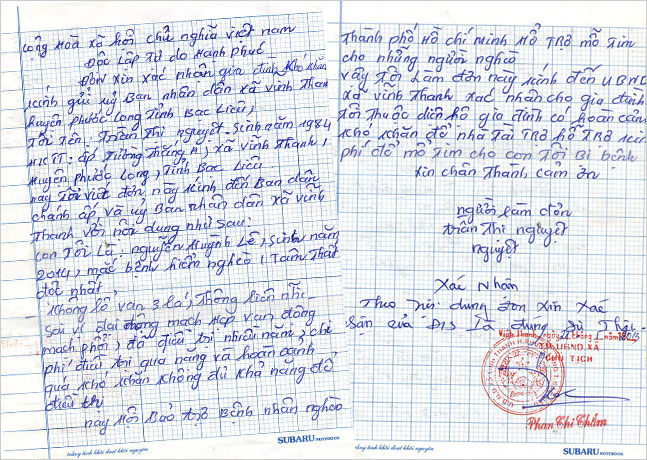 Cộng Hoà xã hội chủ nghĩa việt nam
Độc Lập Tự do Hạnh Phúc
Đơn xin xác nhận gia đình khó khăn
kính gửi uỷ Ban nhân dân xã vĩnh Thanh
huyện phước Long Tỉnh Bạc Liêu,
Tôi Tên: Trần Thi nguyệt, Sinh năm 1984
HKTT: ấp Tường Thắng A, xã vĩnh Thanh,
Huyện phước Long, Tỉnh Bạc Liêu
nay Tôi viết đơn này kính đến Ban dân
chánh ấp và uỷ Ban nhân dân xã vĩnh
Thanh với nội dung như sau:
con Tôi Là: nguyễn Huỳnh Lê, Sinh năm
2014, mắc bệnh hiểm nghèo, Tâm Thất
độc nhất,
không lổ van 3 lá, Thông liên nhĩ
Sai vi đại động mạch Hẹp van động
mạch phổi, đã điều trị nhiều năm, chi
phí điều trị quá nặng và hoàn cảnh
quá khó khăn không đủ khả năng để
điều trị
nay Hội Bảo trợ Bệnh nhân nghèo
SUBARU NOTEBOOK
Thành phố Hồ chí minh Hổ TRợ mổ Tim
cho những người nghèo
vậy Tôi Làm đơn này kính đến UBND
xã vĩnh Thanh xác nhận cho gia đình
tôi thuộc diện hộ gia đình có hoàn cảnh
khó khăn để nhà Tài TRợ hổ TRợ kinh
phí để mổ tim cho con Tôi Bị bệnh
xin chân Thành cảm ơn
người Làm đơn
trần Thi nguyệt
nguyệt
Xác Nhận
Theo nội dung đơn xin xác
của Là đúng sự Thật
Vĩnh Thanh, ngày tháng 1 năm 2015
TM.UBND.XÃ
CHỦ TỊCH
Phan Thi Thắm
SUBARU NOTEBOOK